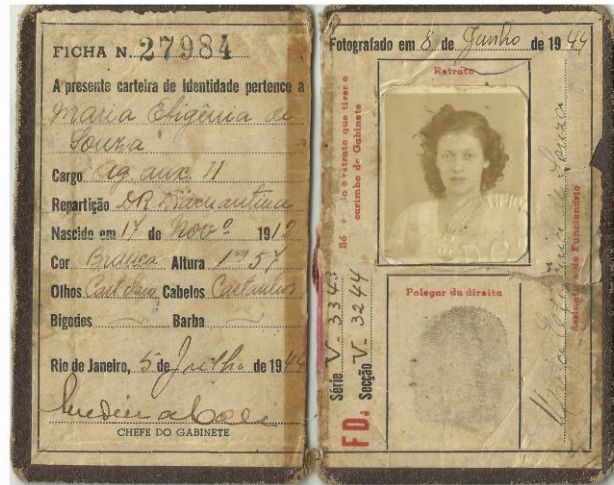 FICHA N. 27984
A presente carteira de identidade pertence a
Maria Efigênia de
Souza
Cargo Ag aux. 11
Repartição DR Diamantina
Nascido em 17 de Novº 1912
Cor Branca Altura 1m57
Olhos Cast. claro Cabelos Castanhos
Bigodes Barba
Rio de Janeiro, 5 de Julho de 1944
CHEFE DO GABINETE
Fotografado em 8 de Junho de 1944
Retrato
Só o retrato que tiver o
carimbo do Gabinete
Polegar da direita
Série V. 3343
Secção V. 3244
FD.
Maria Efigênia de Souza
Assinatura do Funcionário